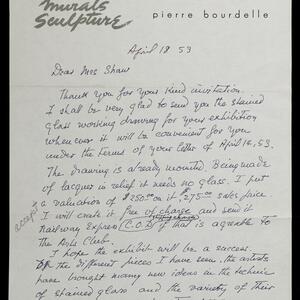 murals
sculpture
pierre bourdelle
April 18 53
Dear Mrs Shaw
Thank you for your kind invitation.
I shall be very glad to send you the stained
glass working drawing for your exhibition
whenever it will be convenient for you
under the terms of your letter of April 16, 53.
The drawing is already mounted. Being made
of lacquer in relief it needs no glass. I put
a valuation of $250.00 it $275.00 sales price
accept
I will crate it free of charge and send it
Railway Express C.O.D if that is agreable to
The Arts Club.
I hope the exhibit will be a success.
the different pieces I have seen, the artists
have brought many new ideas in the technic
of stained glass and the variety of their